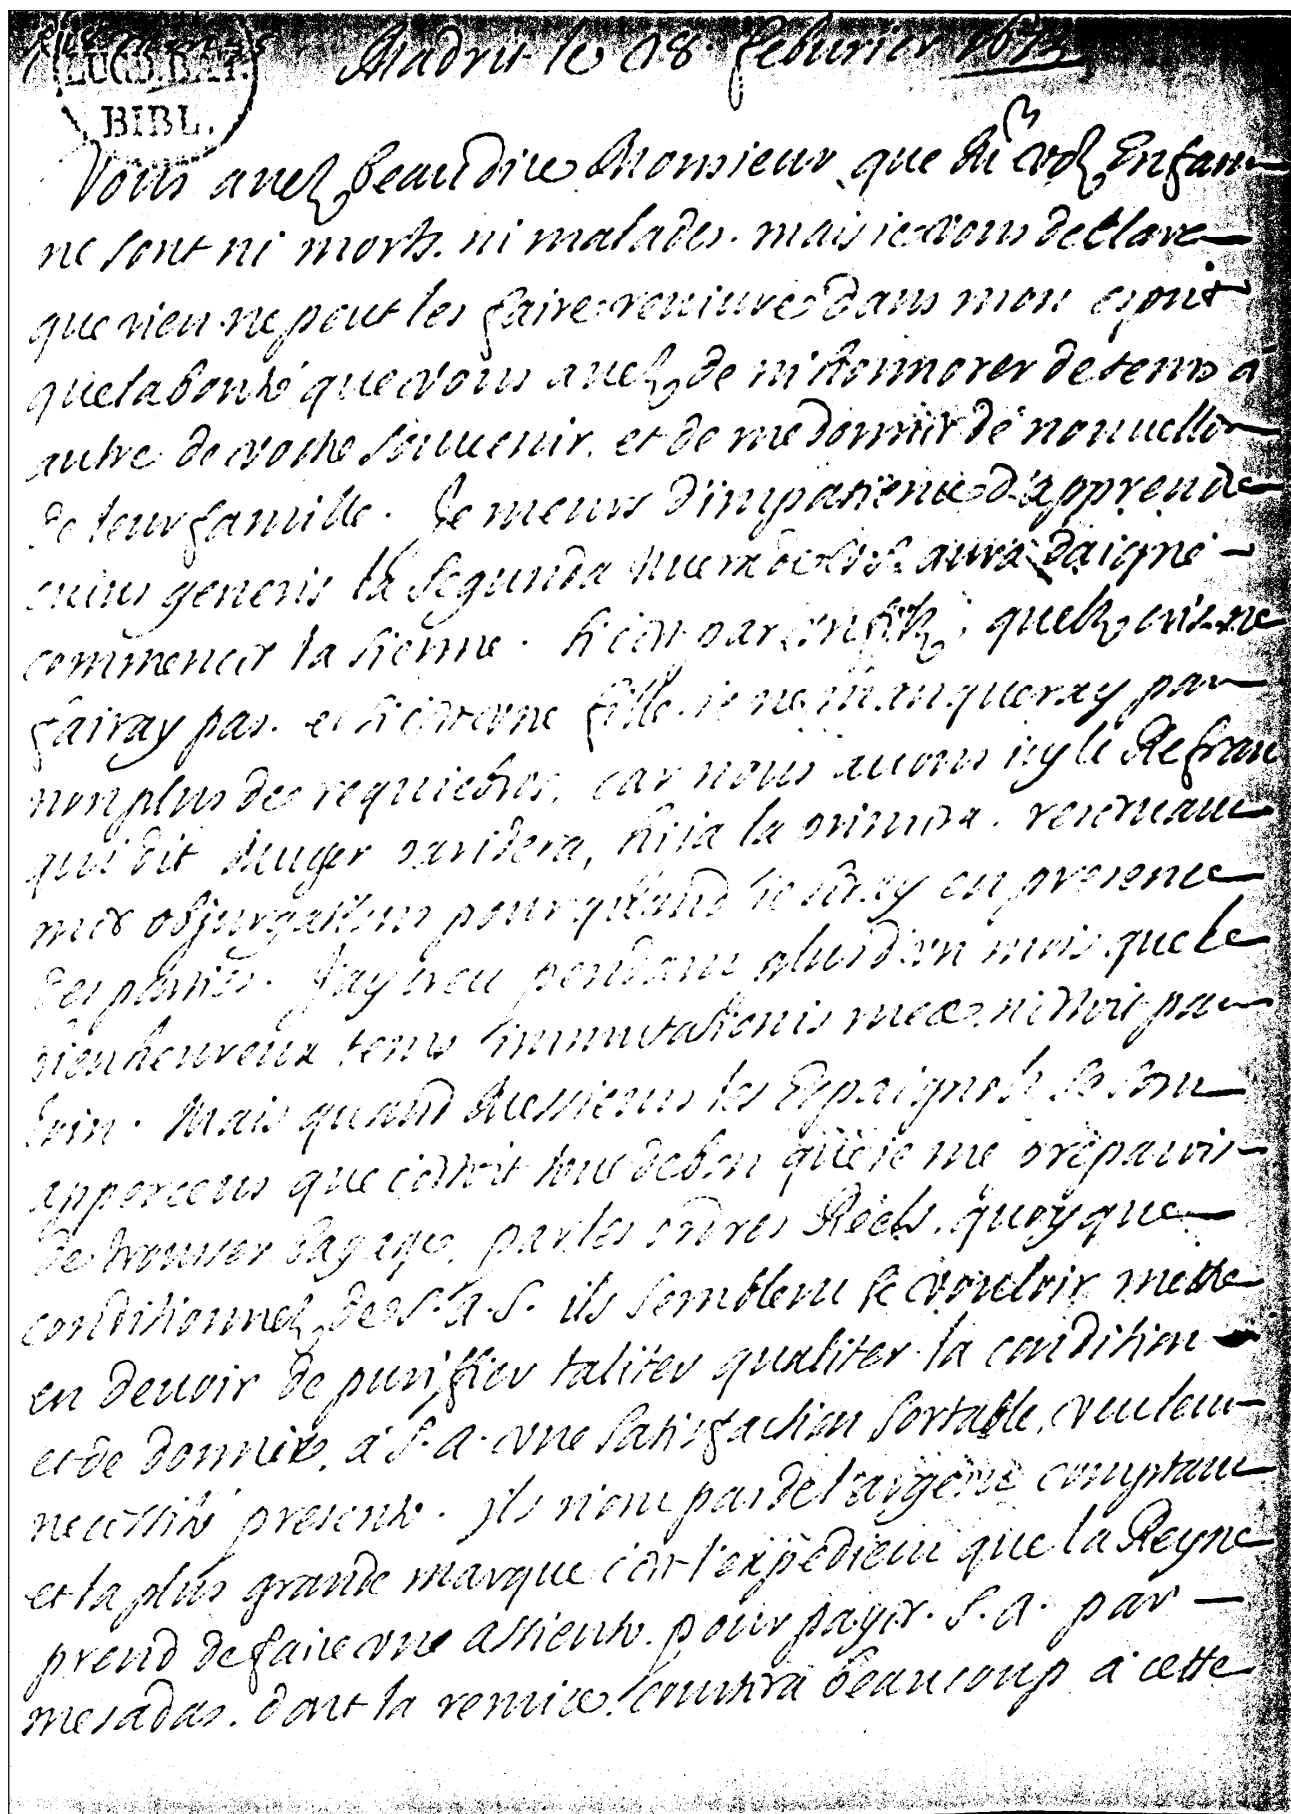 LUGD. BAT.
BIBL.
Madrit le 18. Feburier 1673
Vous avez beau dire Monsieur que Mrs voz Enfans
ne sont ni morts. ni malades. mais ie vous declare
que rien ne peut les faire reuiure dans mon esprit
que la bonté que vous auez de m'honnorer de tems à
autre de vostre souuenir. et de me donner de nouvelles
de leur famille. Je meurs d'impatience d'apprendre
cuius generis la segunda Nuera de V.S. aura daigné
commencer la sienne. Si c'est par un filz, quelz cris ne
fairay pas. et si c'est vne fille. ie ne manqueray pas
non plus des requiebros. car nous auons icy le Refran
qui dit Muger paridera, hija la primera. reservant
mes objurgations pour quand ie seray en presence
des parties. J'ay creu pendant plus d'un mois que le
bienheureux tems immutationis meæ n'estoit pas
loin. Mais quand Messieurs les Espaignols se sont
apperceus que c'estoit tout de bon que ie me preparois
de trousser bagage, par les ordres Réels, quoyque
conditionnelz de S. A. S. ils semblent se vouloir mettre
en deuoir de puriffier taliter qualiter la condition
et de donner à S. A. vne satisfaction sortable, veu leur
necessité presente. Ils n'ont pas de l'argent comptant
et la plus grande marque c'est l'expedient que la Reyne
prend de faire vne assiento pour payer S. A. par
mesadas. dont la remise coustera beaucoup à cette